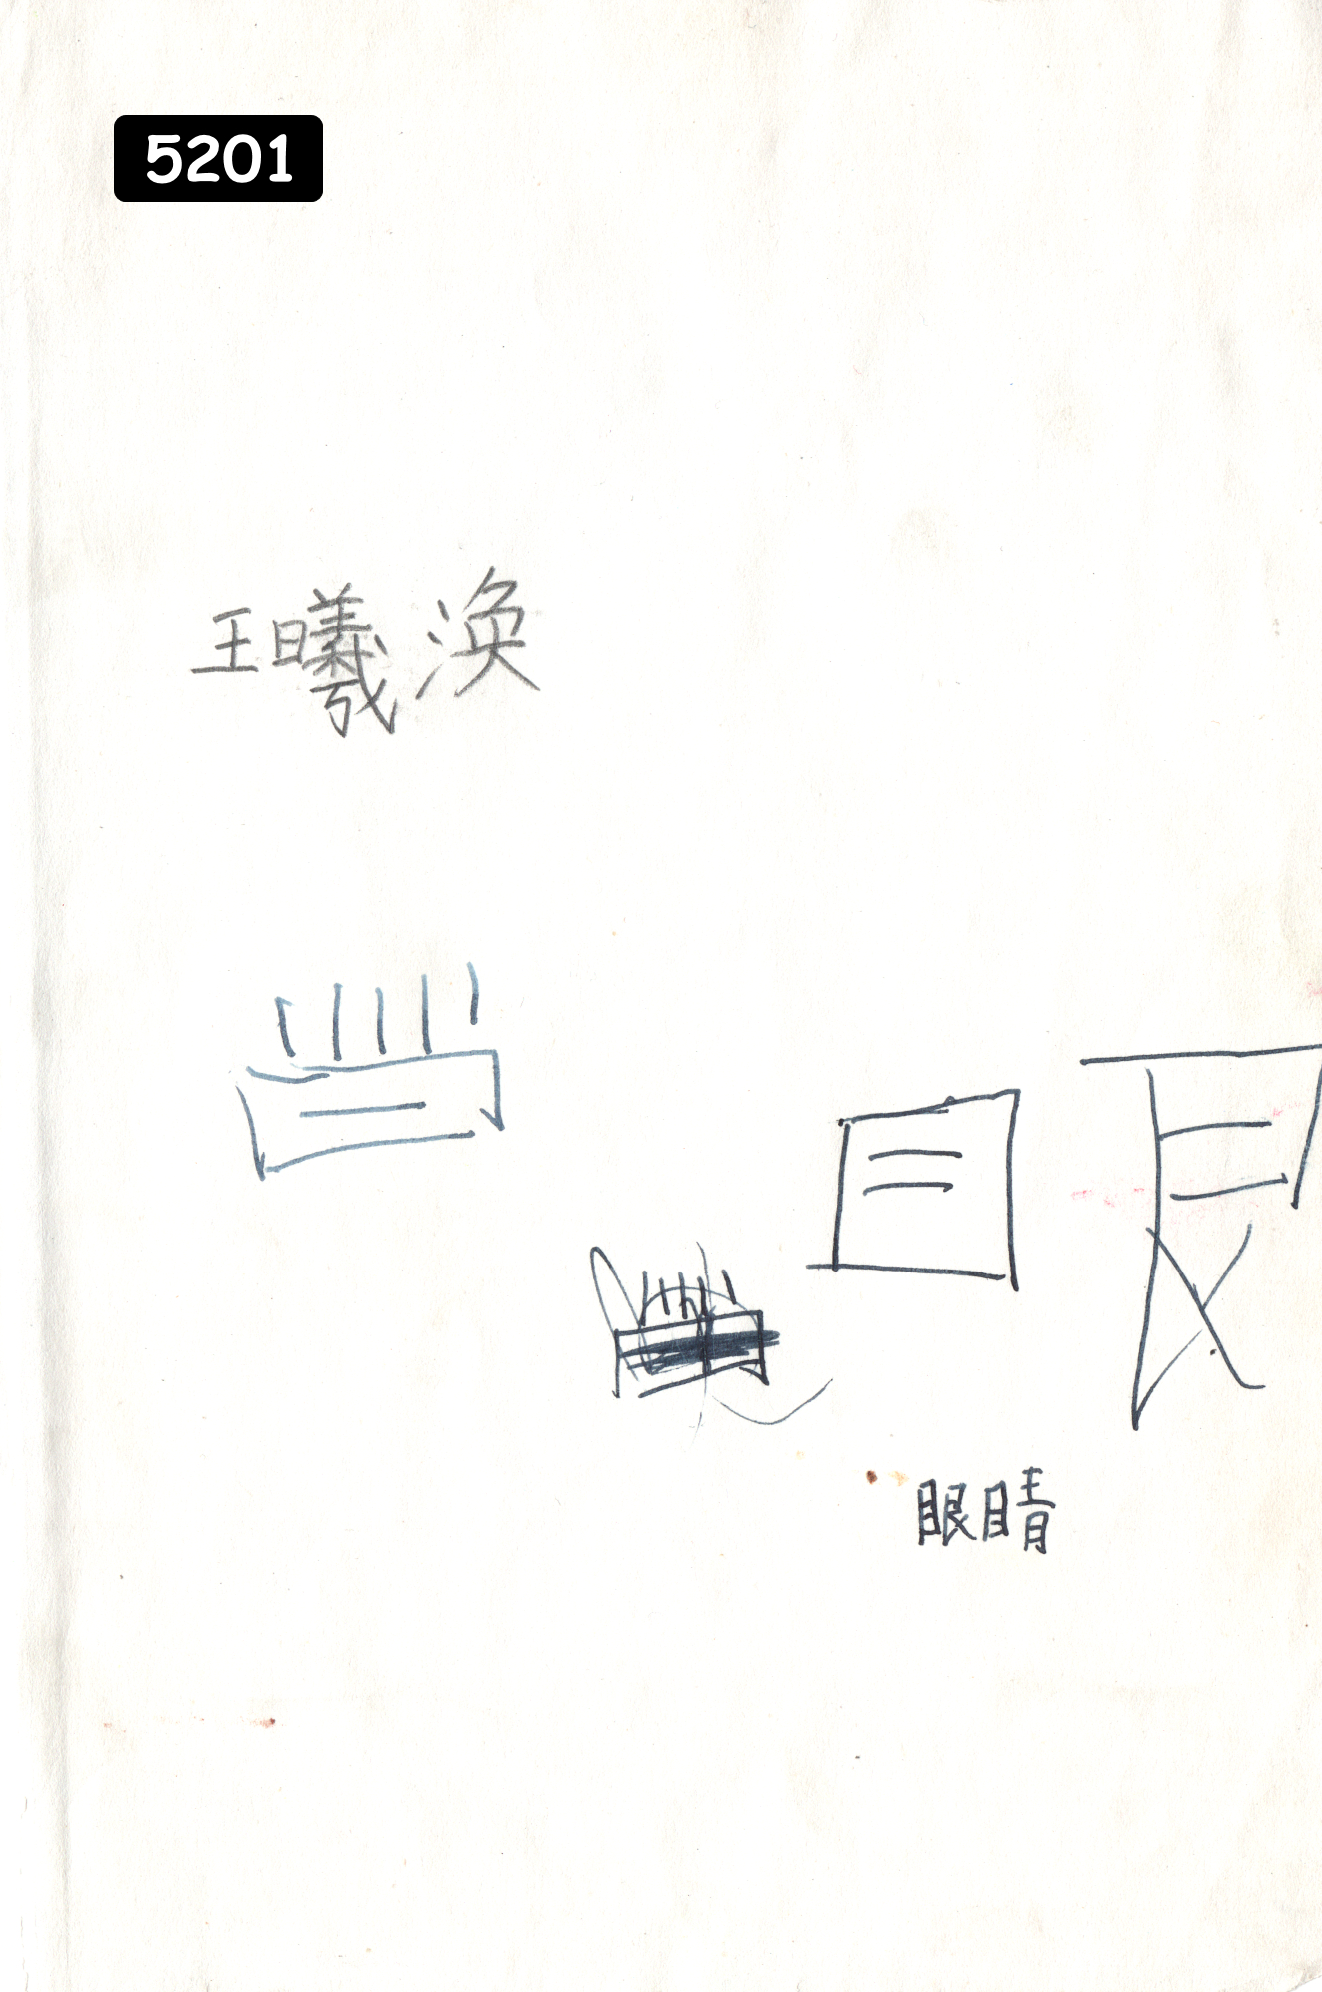 5201
王曦涣
眼睛